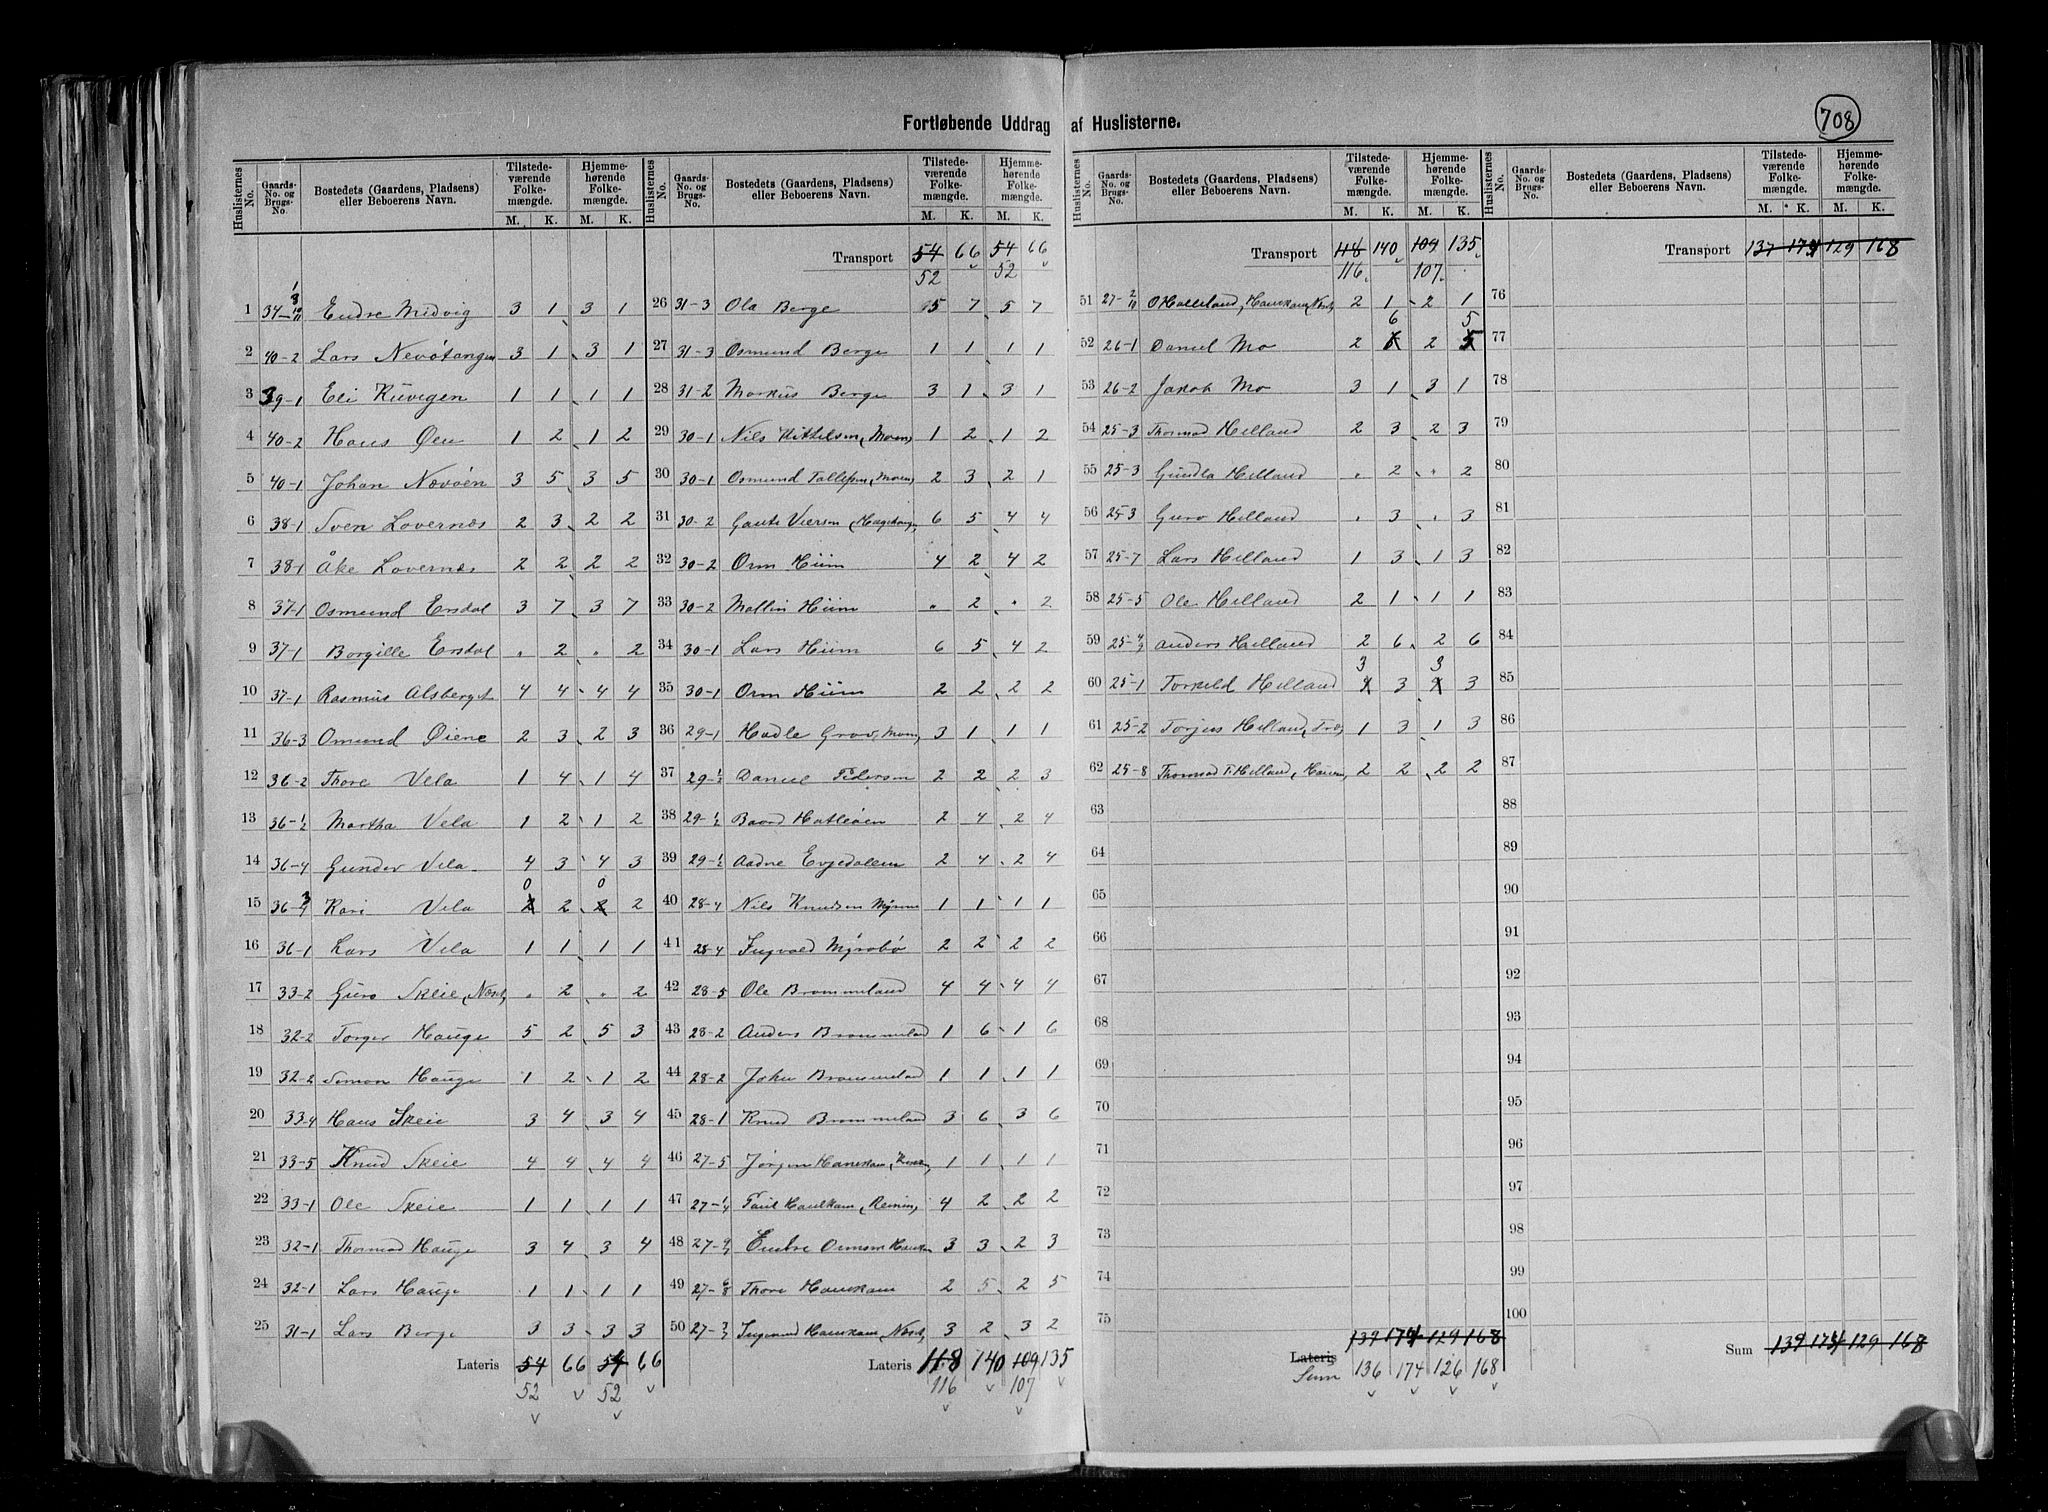 Fortløbende Uddrag af Huslisterne.
708
Huslisternes No. Gaards-No. og Brugs-No. Bostedets (Gaardens, Pladsens) eller Beboerens Navn. Tilstedeværende Folkemængde. M. K. Hjemmehørende Folkemængde. M. K.
1 34- Endre Midvig 3 1 3 1
2 40-2 Lars Nevøtangen 3 1 3 1
3 39-1 Eli Kuvigen 1 1 1 1
4 40-2 Hans Øen 1 2 1 2
5 40-1 Johan Nøvøen 3 5 3 5
6 38-1 Sven Lovernæs 2 3 2 2
7 38-1 Åke Lovernæs 2 2 2 2
8 37-1 Osmund Ersdal 3 7 3 7
9 37-1 Borgille Ersdal " 2 " 2
10 37-1 Rasmus Alsberget 4 4 4 4
11 36-3 Omund Øiene 2 3 2 3
12 36-2 Thore Vela 1 4 1 4
13 36-1/2 Martha Vela 1 2 1 2
14 36-4 Gunder Vela 4 3 4 3
0 0
15 36- Kari Vela 2 2 2 2
16 36-1 Lars Vela 1 1 1 1
17 33-2 Guro Skeie, Næset, " 2 " 2
18 32-2 Torger Hauge 5 2 5 3
19 32-2 Simon Hauge 1 2 1 2
20 33-4 Hans Skeie 3 4 3 4
21 33-5 Knud Skeie 4 4 4 4
22 33-1 Ole Skeie 1 1 1 1
23 32-1 Thormod Hauge 3 4 3 4
24 32-1 Lars Hauge 1 1 1 1
25 31-1 Lars Berge 3 3 3 3
Lateris 54 66 54 66
52 52
Transport 54 66 54 66
52 52
26 31-3 Ola Berge 5 7 5 7
27 31-3 Osmund Berge 1 1 1 1
28 31-2 Markus Berge 3 1 3 1
29 30-1 Nils Kittelsen, Moen, 1 2 1 2
30 30-1 Osmund Tollefsen, Moen, 2 3 2 1
31 30-2 Gaute Vierson, 6 5 4 4
32 30-2 Orm Hiim 4 2 4 2
33 30-2 Mallin Hiim " 2 " 2
34 30-1 Lars Hiim 6 5 4 2
35 30-1 Orm Hiim 2 2 2 2
36 29-1 Hadle Grov, Moen, 3 1 1 1
37 29-1/2 Daniel Pedersen 2 2 2 3
38 29-1/2 Baard Hatleøen 2 4 2 4
39 29-1/2 Aadne Evjedalen 2 4 2 4
40 28-4 Nils Knudsen Myrene 1 1 1 1
41 28-4 Ingvald Myrabø 2 2 2 2
42 28-5 Ole Brommeland 4 4 4 4
43 28-2 Anders Brommeland 1 6 1 6
44 28-2 John Brommeland 1 1 1 1
45 28-1 Knud Brommeland 3 6 3 6
46 27-5 Jørgen Hanekam, 1 1 1 1
47 27-1/4 Paul Hanekam, 4 2 2 2
48 27- Endre Ormsen Hanekam 3 3 2 3
49 27-6/8 Thore Hanekam 2 5 2 5
50 27- Ingemund Hanekam, Næset, 3 2 3 2
Lateris 118 140 109 135
116 107
Huslisternes No. Gaards-No. og Brugs-No. Bostedets (Gaardens, Pladsens) eller Beboerens Navn. Tilstedeværende Folkemængde. M. K. Hjemmehørende Folkemængde. M. K.
Transport 118 140 109 135
116 107
51 27-2/11 O Halleland, Hanekam, Næset, 2 1 2 1
6 5
52 26-1 Daniel Mo 2 2
53 26-2 Jakob Mo 3 1 3 1
54 25-3 Thormod Helland 2 3 2 3
55 25-3 Gundla Helland " 2 " 2
56 25-3 Guro Helland " 3 " 3
57 25-7 Lars Helland 1 3 1 3
58 25-5 Ole Helland 2 1 1 1
59 25-4/9 Anders Helland 2 6 2 6
3 3
60 25-1 Torkeld Helland 3 3
61 25-2 Torjus Helland, 1 3 1 3
62 25-8 Thormod T. Helland, 2 2 2 2
63
64
65
66
67
68
69
70
71
72
73
74
75
139 174 129 168
Lateris
Sum 136 174 126 168
Transport 137 174 129 168
76
77
78
79
80
81
82
83
84
85
86
87
88
89
90
91
92
93
94
95
96
97
98
99
100
Sum 139 174 129 168